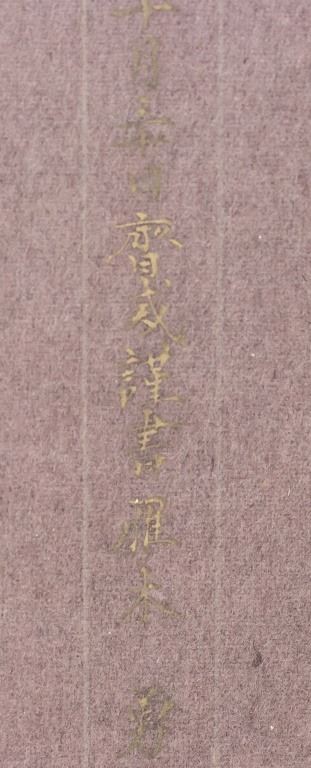 十月日齋戒謹書羅本